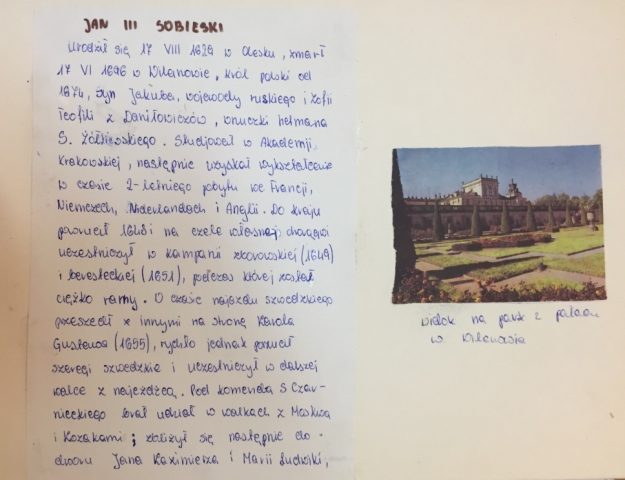 JAN III SOBIESKI
Urodził się 17 VIII 1629 w Olesku, zmarł
17 VI 1696 w Wilanowie, król polski od
1674, syn Jakuba, wojewody ruskiego i Zofii
Teofili z Daniłowiczów, wnuczki hetmana
S. Żółkiewskiego. Studiował w Akademii
Krakowskiej, następnie uzyskał wykształcenie
w czasie 2-letniego pobytu we Francji,
Niemczech, Niderlandach i Anglii. Do kraju
powrócił 1648 i na czele własnej chorągwi
uczestniczył w kampanii zborowskiej (1649)
i beresteckiej (1651), podczas której został
ciężko ranny. W czasie najazdu szwedzkiego
przeszedł z innymi na stronę Karola
Gustawa (1655), rychło jednak porzucił
szeregi szwedzkie i uczestniczył w dalszej
walce z najeźdźcą. Pod komendą S. Czar-
nieckiego brał udział w walkach z Moskwą
i Kozakami; zbliżył się następnie do
dworu Jana Kazimierza i Marii Ludwiki,
widok na park z pałacu
w Wilanowie